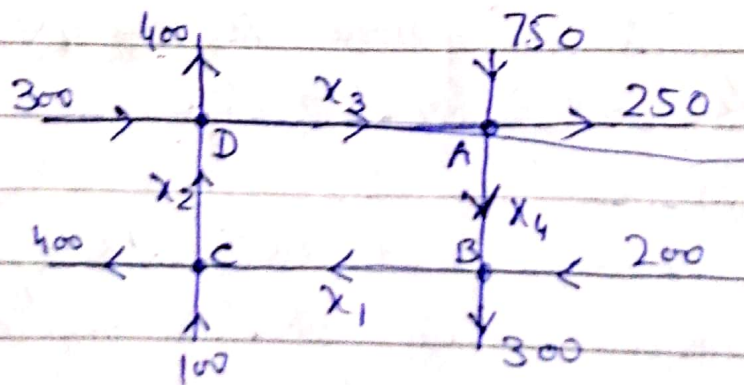 400 750
300 x3 250
D A
x2 x4
400 C B 200
x1
100 300